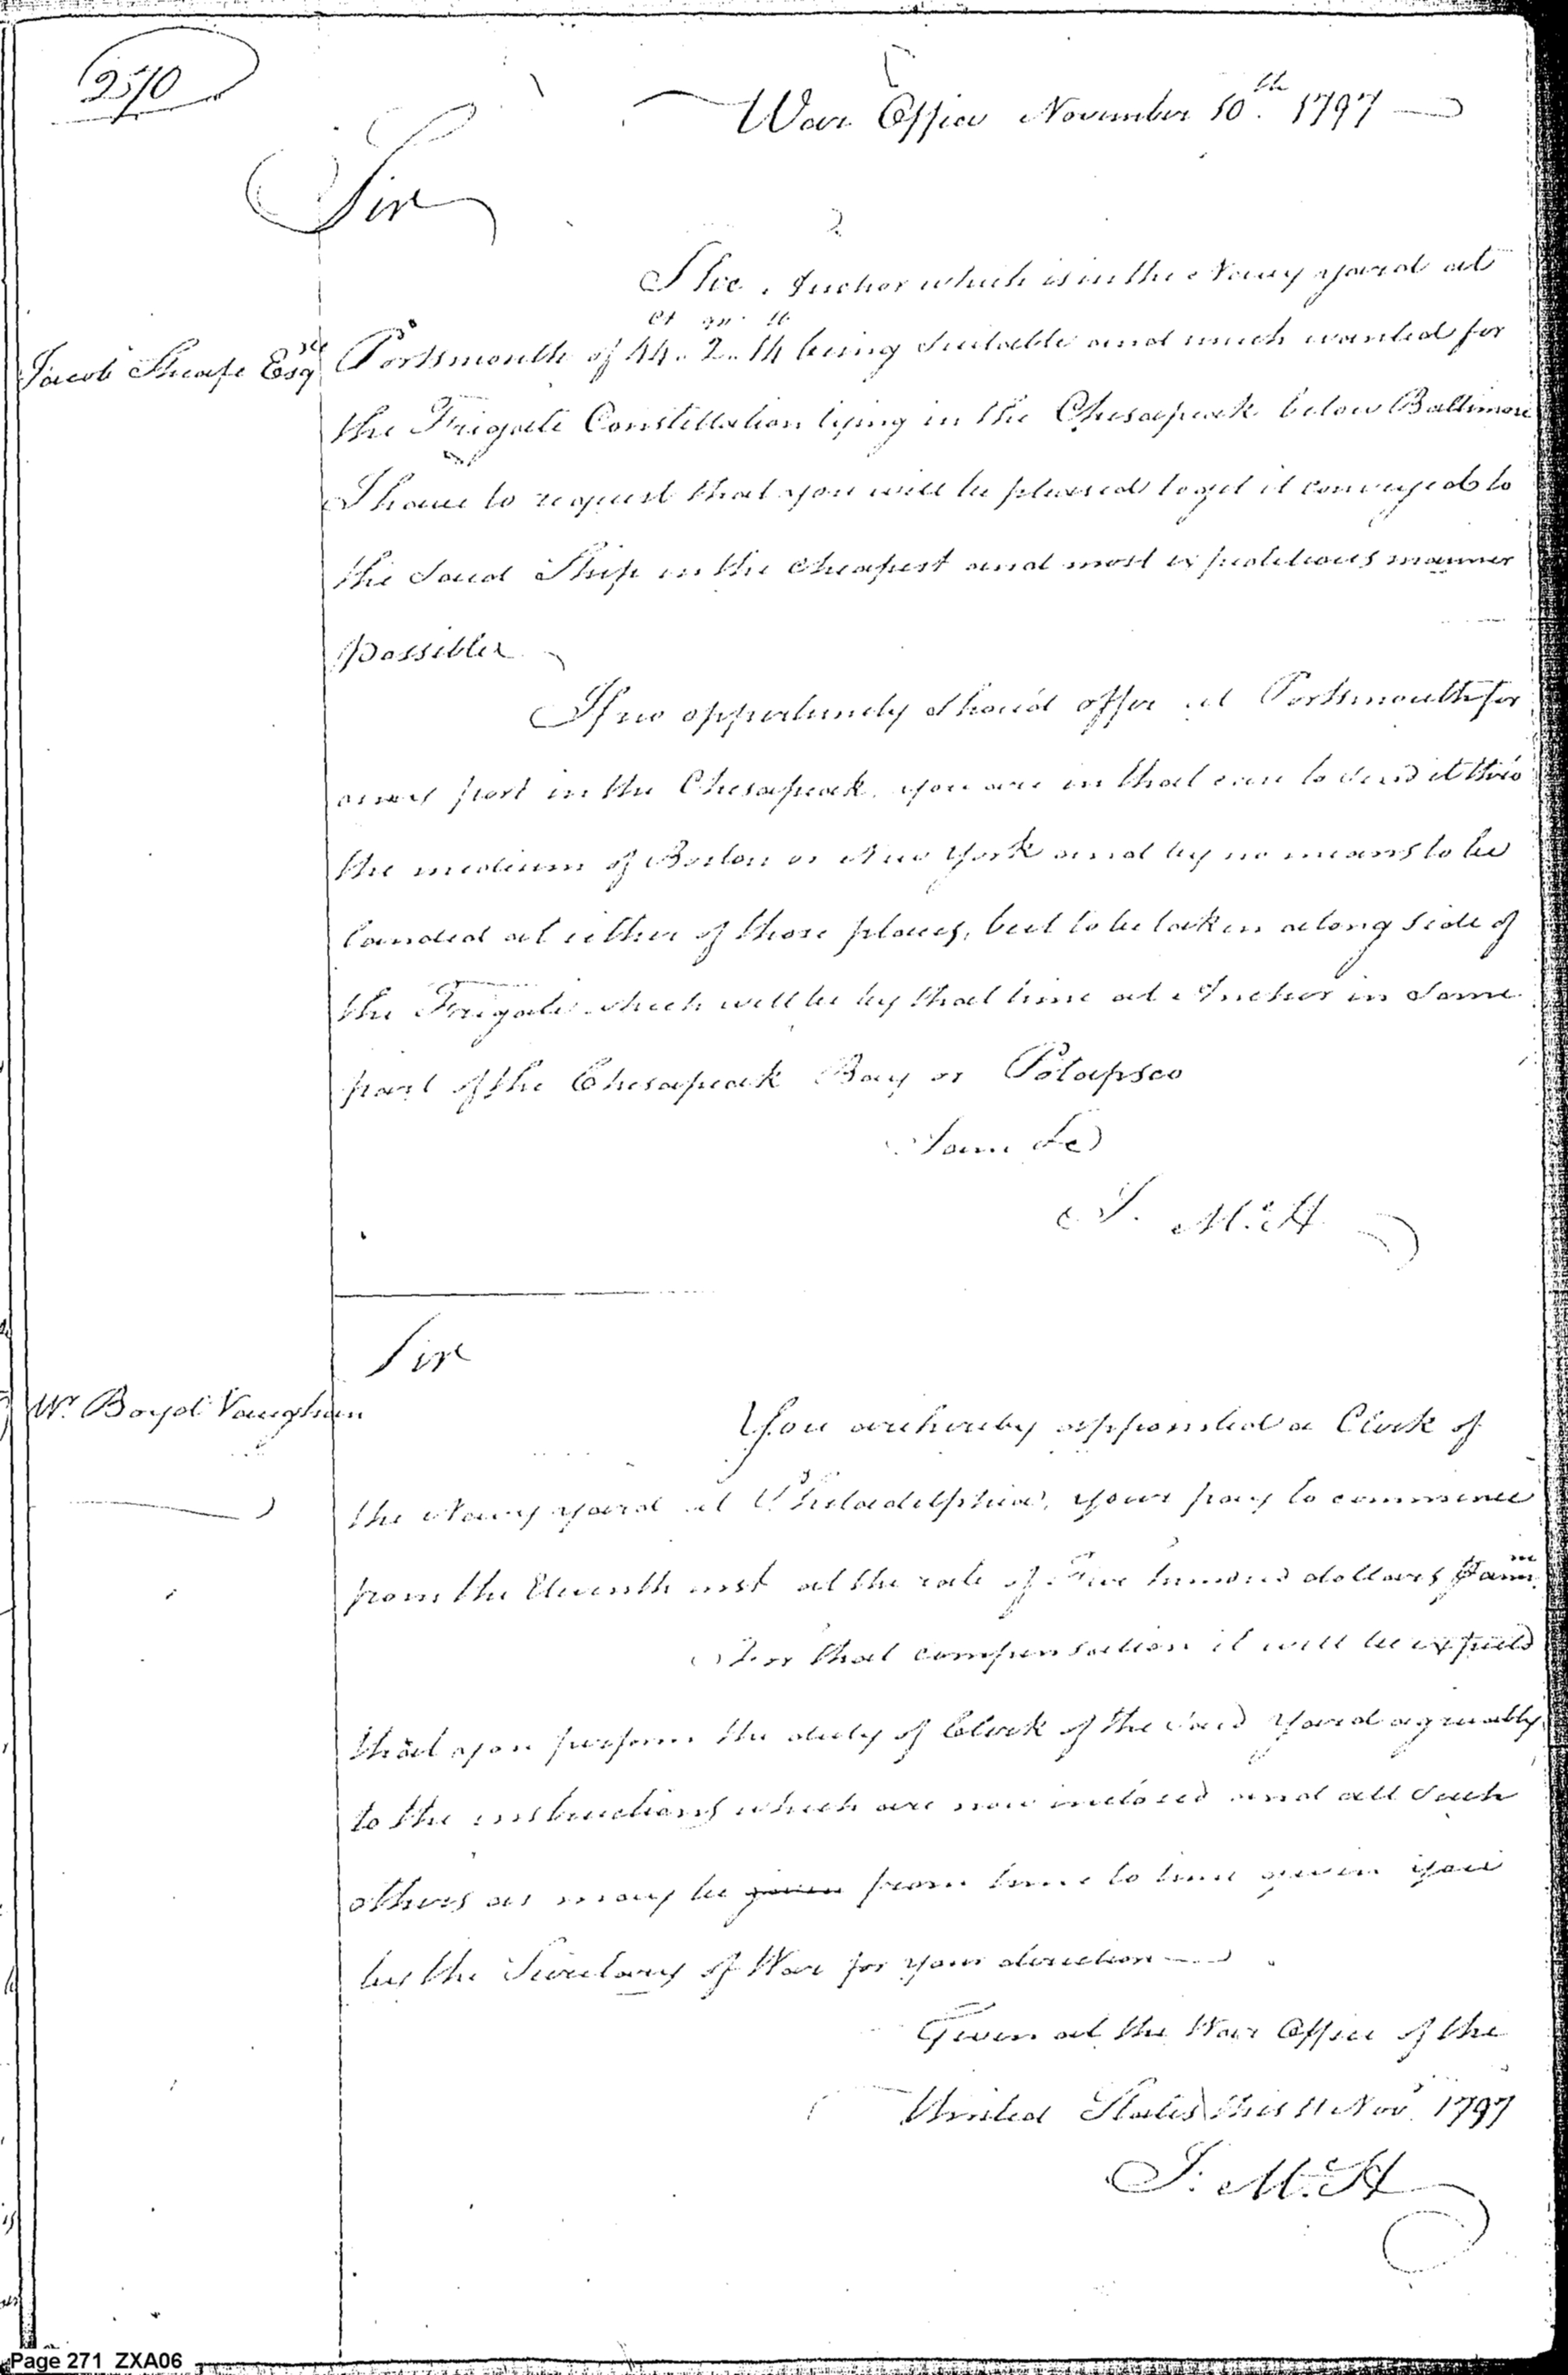 270
War Office November 10th. 1797
Sir
The Anchor which is in the Navy yard at
Ct qr lb
Jacob Sheafe Esqre
Portsmouth of 44. 2. 14 being suitable and much wanted for
the Frigate Constellation lying in the Chesapeak below Baltimore
I have to request that you will be pleased to get it conveyed to
the said Ship in the cheapest and most expeditious manner
possible
If no opportunity should offer at Portsmouth for
any port in the Chesapeak, you are in that case to send it thro
the medium of Boston or New York and by no means to be
landed at either of those places, but to be taken along side of
the Frigate which will be by that time at Anchor in some
part of the Chesapeak Bay or Patapsco
I am &c
J. McH
Sir
Mr. Boyd Vaughan
You are hereby appointed a Clerk of
the Navy yard at Philadelphia, your pay to commence
from the Eleventh inst at the rate of Five hundred dollars ⅌ annm.
For that compensation it will be expected
that you perform the duty of Clerk of the said Yard agreeably
to the instructions which are now inclosed and all such
others as may be given from time to time given you
by the Secretary of War for your direction
Given at the War Office of the
United States this 11 Nov. 1797
J. McH
Page 271 ZXA06